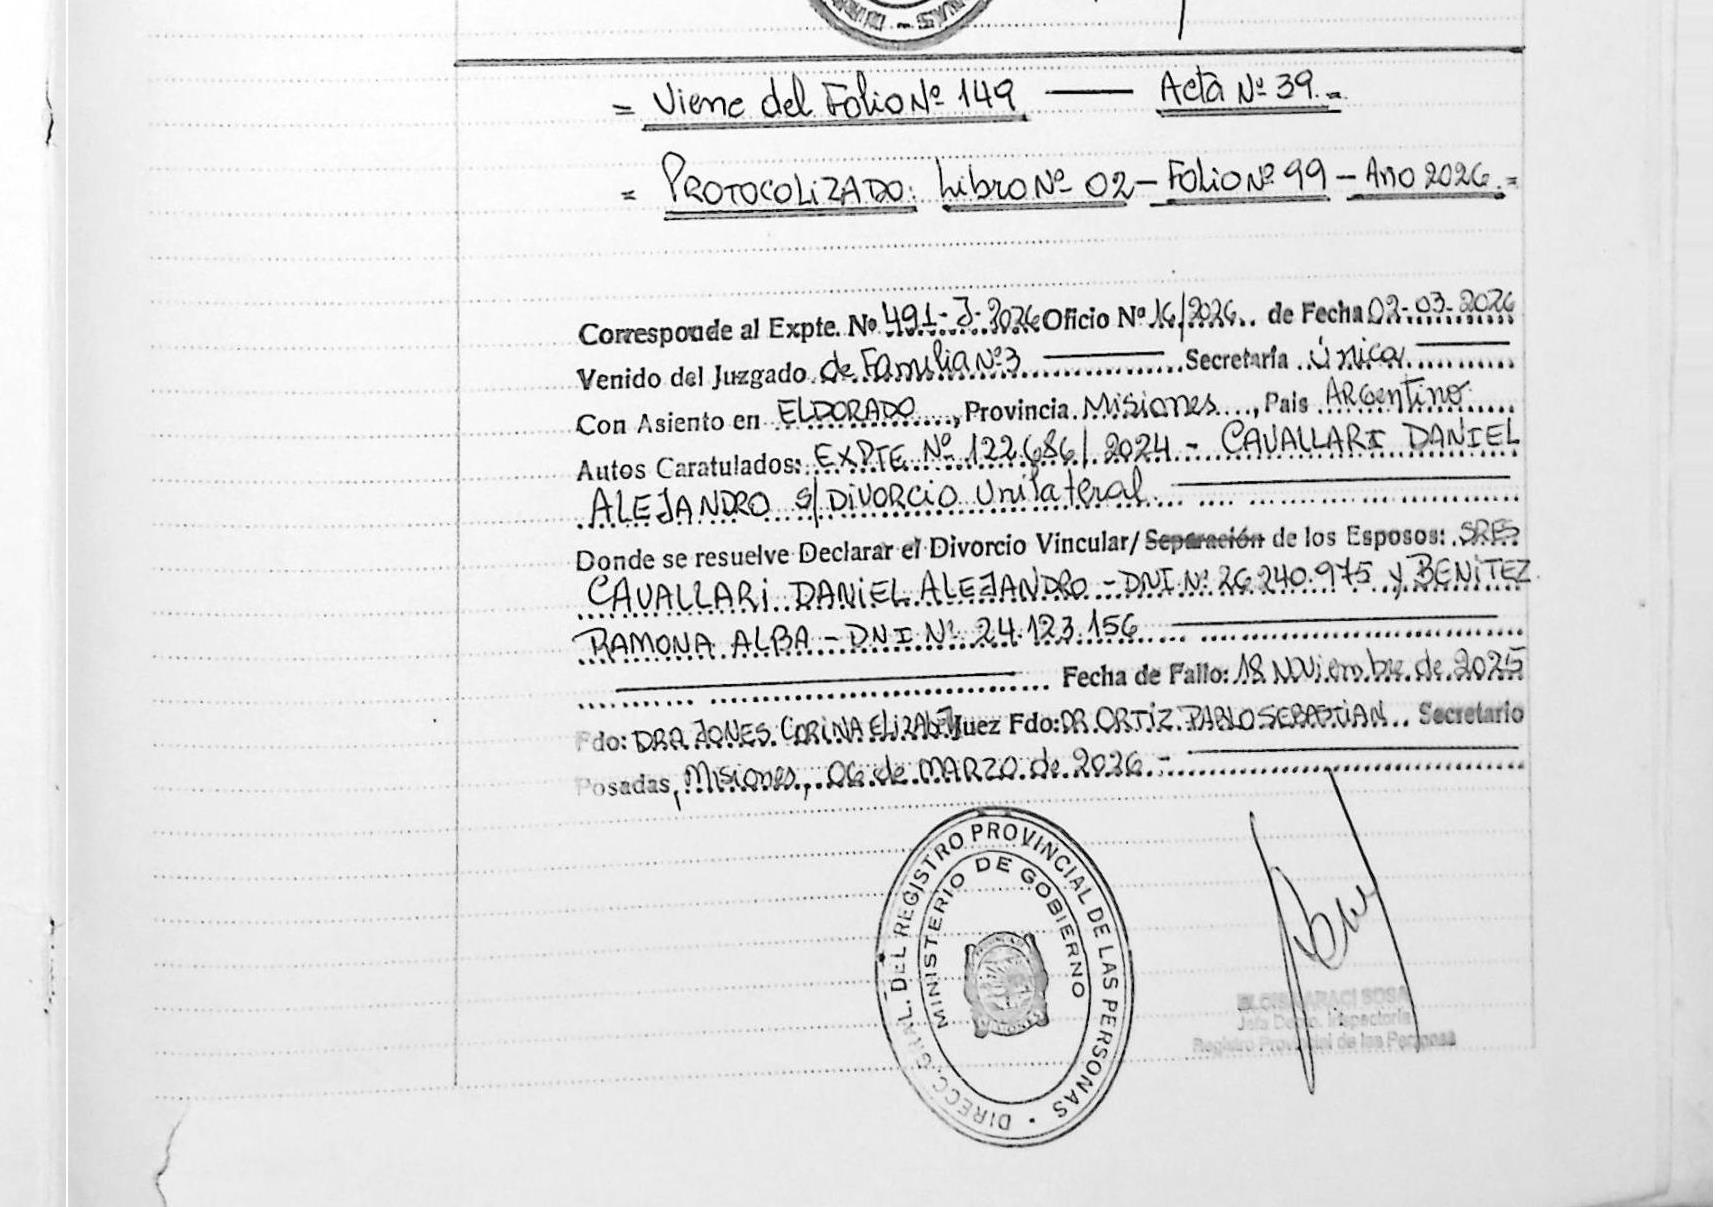 = Viene del Folio Nº 149 —— Acta Nº 39.-
= PROTOCOLIZADO: Libro Nº 02 - Folio Nº 99 - Año 2026.=
Corresponde al Expte. Nº 491-J-2026 Oficio Nº 16/2026 de Fecha 02-03-2026
Venido del Juzgado de Familia Nº 3 —— Secretaría Única ——
Con Asiento en ELDORADO, Provincia Misiones, País ARGentino
Autos Caratulados: EXPTE Nº 122.686/2024 - CAVALLARI DANIEL
ALEJANDRO s/ DIVORCIO Unilateral. ——
Donde se resuelve Declarar el Divorcio Vincular/Separación de los Esposos: SRES
CAVALLARI DANIEL ALEJANDRO - DNI Nº 26.240.975 y BENITEZ
RAMONA ALBA - DNI Nº 24.123.156 ——
—— Fecha de Fallo: 18 NOViembre de 2025
Fdo: DRA JONES CORINA ELIZABET Juez Fdo: DR. ORTIZ PABLO SEBASTIAN Secretario
Posadas, Misiones, 06 de MARZO de 2026.- ——
DIRECC. GRAL. DEL REGISTRO PROVINCIAL DE LAS PERSONAS
MINISTERIO DE GOBIERNO
MISIONES
SOSA
Jefa Dpto. Inspectoría
Registro Provincial de las Personas